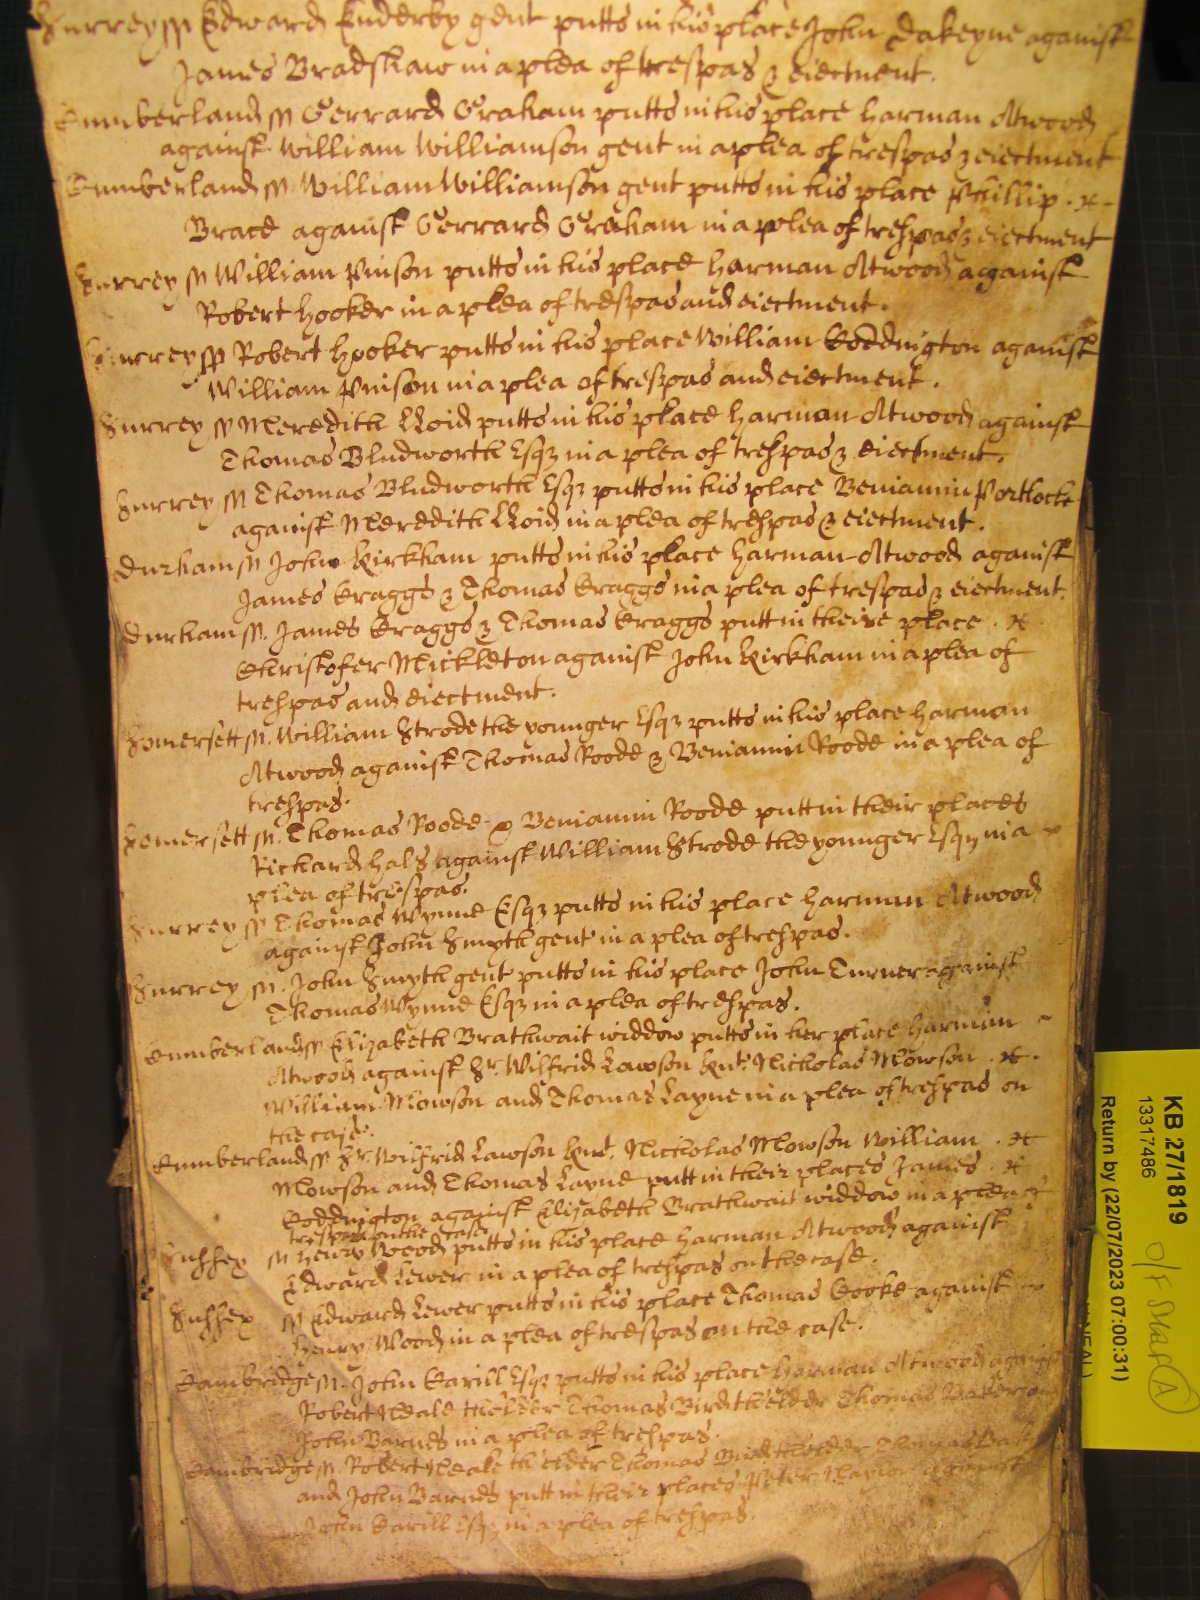 Surrey ss Edward Enderby gent putts in his place John Dakeyne against
James Bradshaw in a plea of trespas & eiectment.
Cumberland ss Gerrard Graham putts in his place Harman Atwood
against William Williamson gent in a plea of trespas & eiectment
Cumberland ss William Williamson gent putts in his place Phillip
Brace against Gerrard Graham in a plea of trespas & eiectment
Surrey ss William Pinson putts in his place Harman Atwood against
Robert Hooker in a plea of trespas and eiectment.
Surrey ss Robert Hooker putts in his place William Coddington against
William Pinson in a plea of trespas and eiectment.
Surrey ss Meredith Lloid putts in his place Harman Atwood against
Thomas Bludworth Esqz in a plea of trespas & eiectment.
Surrey ss Thomas Bludworth Esqz putts in his place Beniamin Portlocke
against Meredith Lloid in a plea of trespas & eiectment.
Durham ss John Kirkham putts in his place Harman Atwood against
James Craggs & Thomas Craggs in a plea of trespas & eiectment.
Durham ss. James Craggs & Thomas Craggs putt in theire place
Christofer Mickleton against John Kirkham in a plea of
trespas and eiectment.
Somersett ss. William Strode the younger Esqz putts in his place Harman
Atwood against Thomas Roode & Beniamin Roode in a plea of
trespas.
Somersett ss. Thomas Roode & Beniamin Roode putt in their places
Richard Hals against William Strode the younger Esqz in a
plea of trespas.
Surrey ss Thomas Wynne Esqz putts in his place Harman Atwood
against John Smyth gent in a plea of trespas.
Surrey ss. John Smyth gent putts in his place John Turner against
Thomas Wynne Esqz in a plea of trespas.
Cumberland ss Elizabeth Brathwait widdow putts in her place Harman
Atwood against Sr. Wilfrid Lawson Knt. Nicholas Mowson
William Mowson and Thomas Layne in a plea of trespas on
the case.
Cumberland ss Sr. Wilfrid Lawson Knt. Nicholas Mowson William
Mowson and Thomas Layne putt in their places James
Coddington against Elizabeth Brathwait widdow in a plea of
trespas on the case
Sussex ss Henry Wood putts in his place Harman Atwood against
Edward Lewer in a plea of trespas on the case.
Sussex ss Edward Lewer putts in his place Thomas Cooke against
Henry Wood in a plea of trespas on the case.
Cambridge ss. John Carill Esqz putts in his place Harman Atwood against
Robert Neale the elder Thomas Bird the elder Thomas
John Barnes in a plea of trespas.
Cambridge ss. Robert Neale the elder Thomas Bird the elder Thomas
and John Barnes putt in their places Peter against
John Carill Esqz in a plea of trespas.
KB 27/1819
13317486
Return by (22/07/2023 07:00:31)
O/F Staf A